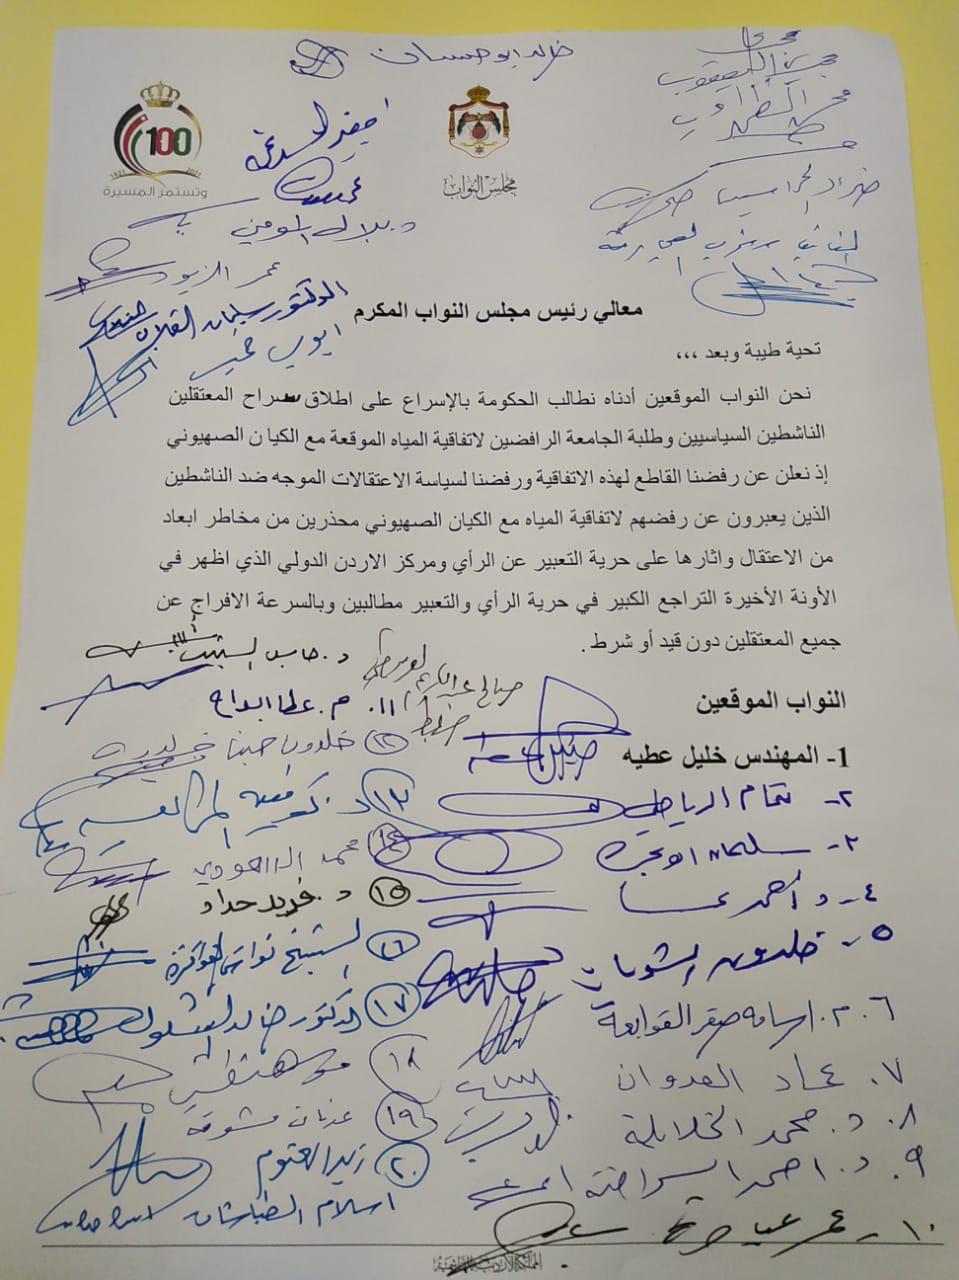 خالد ابو حسان
100
1921 2021
وتستمر المسيرة
مجلس النواب
د. بلال المومني
عمر الزيود
الدكتور سليمان القلاب
ايوب خميس
معالي رئيس مجلس النواب المكرم
تحية طيبة وبعد ،،،
نحن النواب الموقعين أدناه نطالب الحكومة بالإسراع على اطلاق سراح المعتقلين
الناشطين السياسيين وطلبة الجامعة الرافضين لاتفاقية المياه الموقعة مع الكيان الصهيوني
إذ نعلن عن رفضنا القاطع لهذه الاتفاقية ورفضنا لسياسة الاعتقالات الموجه ضد الناشطين
الذين يعبرون عن رفضهم لاتفاقية المياه مع الكيان الصهيوني محذرين من مخاطر ابعاد
من الاعتقال واثارها على حرية التعبير عن الرأي ومركز الاردن الدولي الذي اظهر في
الأونة الأخيرة التراجع الكبير في حرية الرأي والتعبير مطالبين وبالسرعة الافراج عن
جميع المعتقلين دون قيد أو شرط .
النواب الموقعين
1- المهندس خليل عطيه
٢- تمام الرياطي
٣- سليمان ابو يحيى
٤- د أحمد
٥- خلدون الشويات
٦. م. اسامه صقر القوابعة
٧. عماد العدوان
٨. د. محمد الخلايلة
٩. د. احمد السراحنة
١٠- عمر عياصرة
١١. م. عطا ابداح
١٢ خلدون حينا
١٣ د.
١٤ محمد
١٥ د. فريد حداد
١٦ الشيخ نواش القواقزة
١٧ الدكتور خالد الشلول
١٨
١٩ عدنان مشوقه
٢٠ زيد العتوم
اسلام الطباشات
المملكة الأردنية الهاشمية